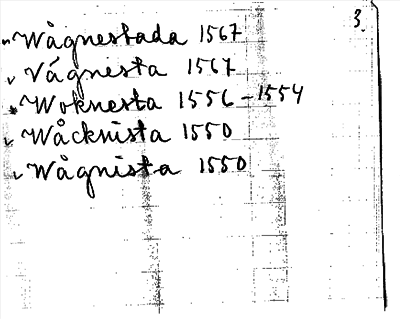 3.
Wågnestada 1567
Vågnesta 1567
Woknesta 1556-1554
Wåcknista 1550
Wågnista 1550